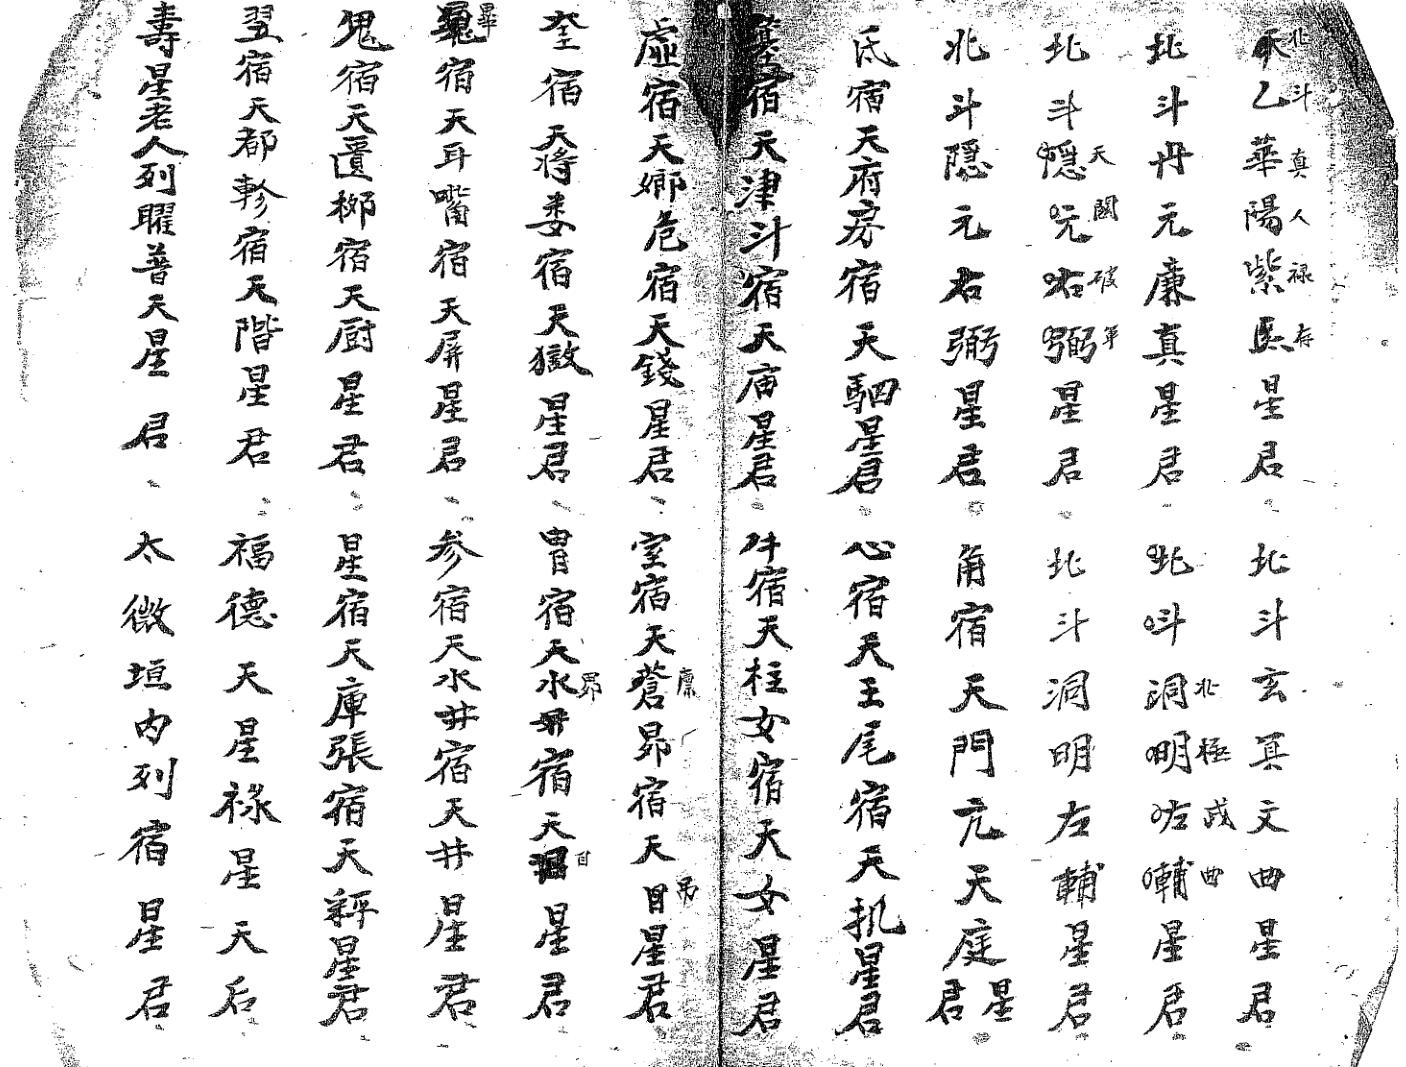 天乙華陽紫炁星君　北斗玄冥文曲星君
北斗真人禄存
北斗丹元廉真星君　北斗洞明左輔星君
北極武曲
北斗隠元右弼星君　北斗洞明左輔星君
天關破軍
北斗隠元右弼星君　角宿天門亢天庭星君
氐宿天府房宿天駟星君　心宿天王尾宿天机星君
箕宿天津斗宿天庙星君　牛宿天柱女宿天女星君
虚宿天鄉危宿天錢星君　室宿天蒼昴宿天目星君
廪
奎宿天将娄宿天獄星君　胃宿天水宿天星君
昴
目
宿天耳嘴宿天屏星君　参宿天水井宿天井星君
畢
鬼宿天匱栁宿天厨星君　星宿天庫張宿天秤星君
翌宿天都軫宿天階星君　福德天星禄星天后
壽星老人列曜普天星君　太微垣内列宿星君